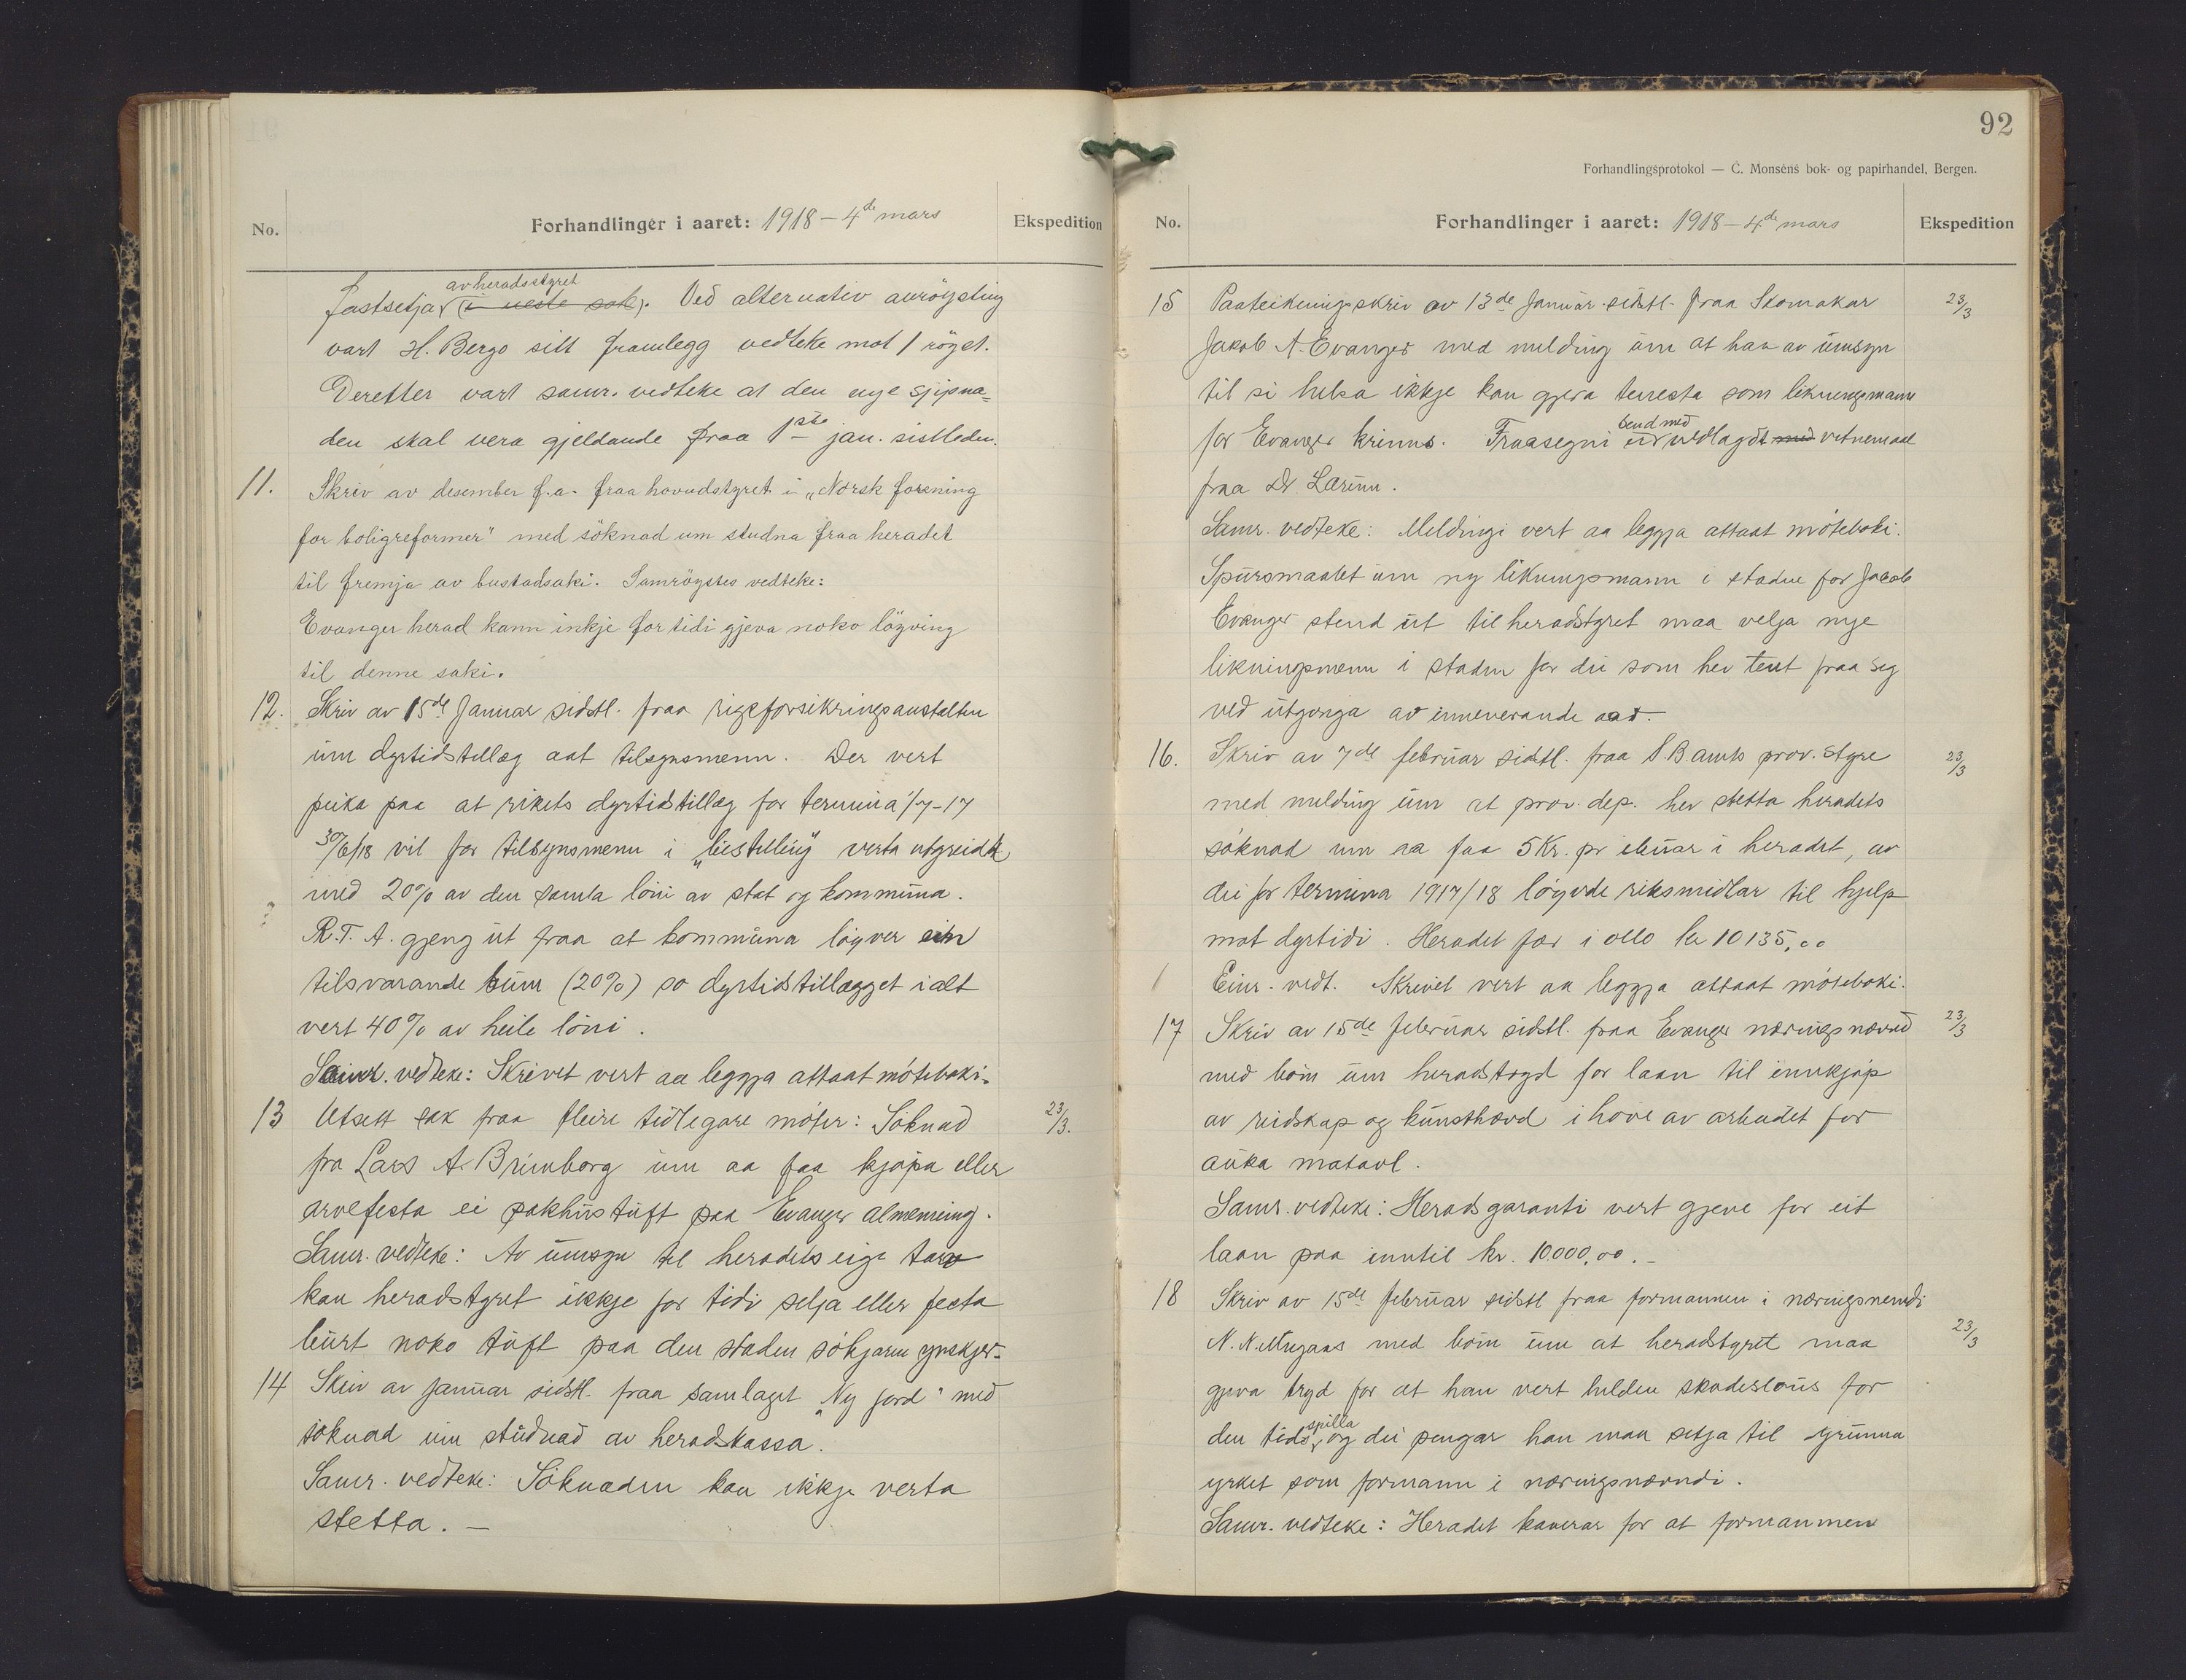 No.
Forhandlinger i aaret: 1918 – 4de mars
Ekspedition
av heradsstyret
fastsetja (i neste sak). Ved alternativ avröysting
vart H. Bergo sitt framlegg vedteke mot 1 röyst.
Deretter vart samr. vedteke at den nye skipna-
den skal vera gjeldande fraa 1ste jan. sistleden.
11. Skriv av desember f.a. fraa hovudstyret i „Norsk forening
for boligreformer" med söknad um studna fraa heradet
til fremja av bustadsaki. Samröystes vedteke:
Evanger herad kann inkje for tidi gjeva noko löyving
til denne saki.
12. Skriv av 15de Januar sidstl. fraa rigsforsikringsanstalten
um dyrtidstillæg aat tilsynsmenn. Der vert
peika paa at rikets dyrtidstillæg for termina 1/7-17
30/6/18 vil for tilsynsmenn i „bistilling" verta utgreidt
med 20% av den samla löni av stat og kommuna.
R.T.A. gjeng ut fraa at kommuna löyver ein
tilsvarande sum (20%) so dyrtidstillægget ialt
vert 40% av heile löni.
Samr. vedteke: Skrivet vert aa leggja attaat möteboki.
13 Utsett sak fraa fleire tidlegare möter: Söknad
23/3.
fra Lars A. Brunborg um aa faa kjöpa eller
arvefesta ei pakhustuft paa Evanger almenning.
Samr. vedteke: Av umsyn til heradets eige tarv
kan heradstyret ikkje for tidi selja eller festa
burt noko tuft paa den staden sökjaren ynskjer.
14 Skriv av Januar sidstl. fraa samlaget „Ny jord" med
söknad um studnad av heradskassa.
Samr. vedteke: Söknaden kan ikkje verta
stetta. –
92
Forhandlingsprotokol — C. Monsens bok- og papirhandel, Bergen.
No.
Forhandlinger i aaret: 1918 – 4de mars
Ekspedition
15 Paateikningsskriv av 13de Januar sidstl. fraa Skomakar
23/3
Jakob A. Evanger med melding um at han av umsyn
til si helsa ikkje kan gjera tenesta som likningsmann
send med
for Evanger krinns. Fraasegni er vedlagdt med vitnemaal
fraa Dr. Lærum.
Samr. vedteke: Meldingi vert aa leggja attaat möteboki.
Spursmaalet um ny likningsmann i staden for Jacob
Evanger stend ut til heradstyret maa velja nye
likningsmenn i staden for dei som hev tent fraa seg
ved utgonga av inneverande aar.
16. Skriv av 7de februar sidstl. fraa S.B. amts prov. styre
23/3
med melding um at prov. dep. hev stetta heradets
söknad um aa faa 5 Kr. pr ibuar i heradet, av
dei for termina 1917/18 löyvde riksmidlar til hjelp
mot dyrtidi. Heradet fær i ollo kr 10135,00
Einr. vedt. Skrivet vert aa leggja attaat möteboki.
17 Skriv av 15de februar sidstl. fraa Evanger næringsnævnd
23/3
med böin um heradstrygd for laan til innkjöp
av reidskap og kunsthævd i höve av arbeidet for
auka matavl.
Samr. vedteke: Heradsgaranti vert gjeve for eit
laan paa inntil kr. 10000,00. –
18 Skriv av 15de februar sidstl fraa formannen i næringsnemdi
23/3
N. N. Mugaas med böin um at heradstyret maa
gjeva trygd for at han vert helden skadeslaus for
spilla
den tid og dei pengar han maa setja til grunna
yrket som formann i næringsnævndi.
Samr. vedteke: Heradet kaverar for at formannen